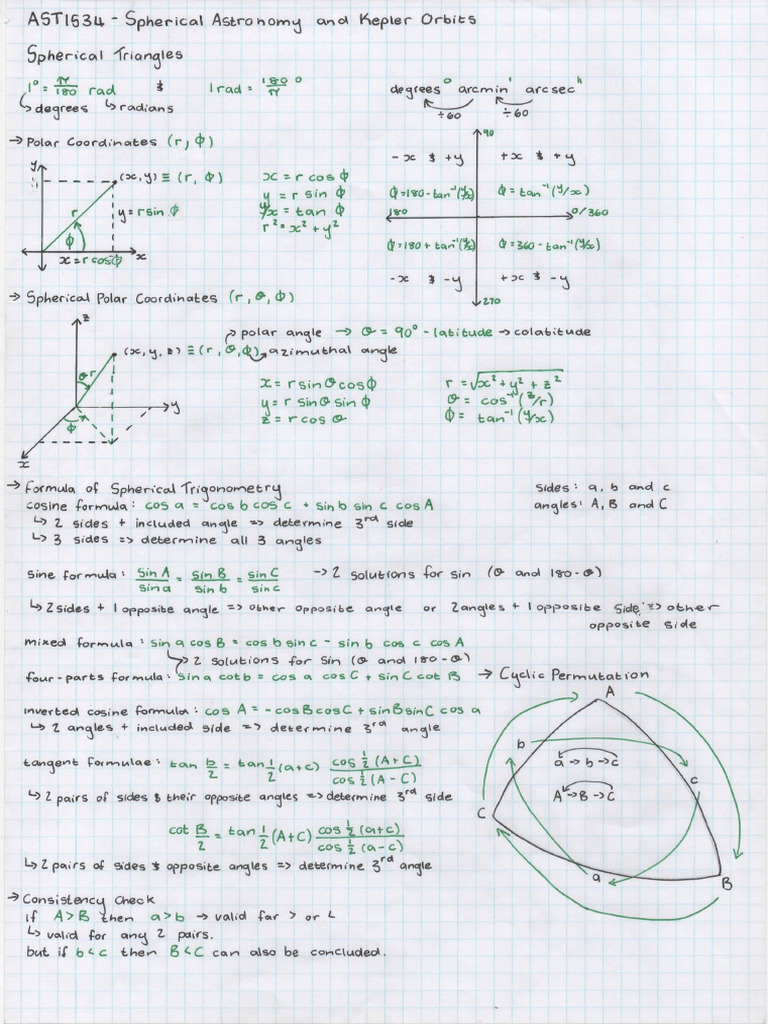 AST1534 - Spherical Astronomy and Kepler Orbits
Spherical Triangles
1° = π/180 rad & 1 rad = 180/π °
degrees radians
degrees° arcmin' arcsec"
÷60 ÷60
→ Polar Coordinates (r, φ)
y
(x,y) ≡ (r, φ)
r
y = r sin φ
φ
x = r cosφ x
x = r cos φ
y = r sin φ
y/x = tan φ
r² = x² + y²
90
-x & +y +x & +y
φ = 180 - tan⁻¹(y/x) φ = tan⁻¹(y/x)
180 0/360
φ = 180 + tan⁻¹(y/x) φ = 360 - tan⁻¹(y/x)
-x & -y +x & -y
270
→ Spherical Polar Coordinates (r, θ, φ)
z
polar angle → θ = 90° - latitude → colatitude
(x, y, z) ≡ (r, θ, φ) azimuthal angle
θ r
y
φ
x
x = r sin θ cos φ
y = r sin θ sin φ
z = r cos θ
r = √x² + y² + z²
θ = cos⁻¹(z/r)
φ = tan⁻¹(y/x)
→ Formula of Spherical Trigonometry
sides: a, b and c
angles: A, B and C
cosine formula: cos a = cos b cos c + sin b sin c cos A
↳ 2 sides + included angle => determine 3rd side
↳ 3 sides => determine all 3 angles
sine formula: sin A/sin a = sin B/sin b = sin C/sin c → 2 solutions for sin (θ and 180-θ)
↳ 2 sides + 1 opposite angle => other opposite angle or 2 angles + 1 opposite side => other
opposite side
mixed formula: sin a cos B = cos b sin c - sin b cos c cos A
↳ 2 solutions for sin (θ and 180-θ)
four-parts formula: sin a cot b = cos a cos C + sin C cot B
inverted cosine formula: cos A = -cos B cos C + sin B sin C cos a
↳ 2 angles + included side => determine 3rd angle
tangent formulae: tan b/2 = tan 1/2 (a+c) cos 1/2 (A+C)/cos 1/2 (A-C)
↳ 2 pairs of sides & their opposite angles => determine 3rd side
cot B/2 = tan 1/2 (A+C) cos 1/2 (a+c)/cos 1/2 (a-c)
↳ 2 pairs of sides & opposite angles => determine 3rd angle
→ Cyclic Permutation
A
b
a → b → c
c
A → B → C
C
a
B
→ Consistency Check
if A > B then a > b → valid for > or <
↳ valid for any 2 pairs.
but if b < c then B < C can also be concluded.